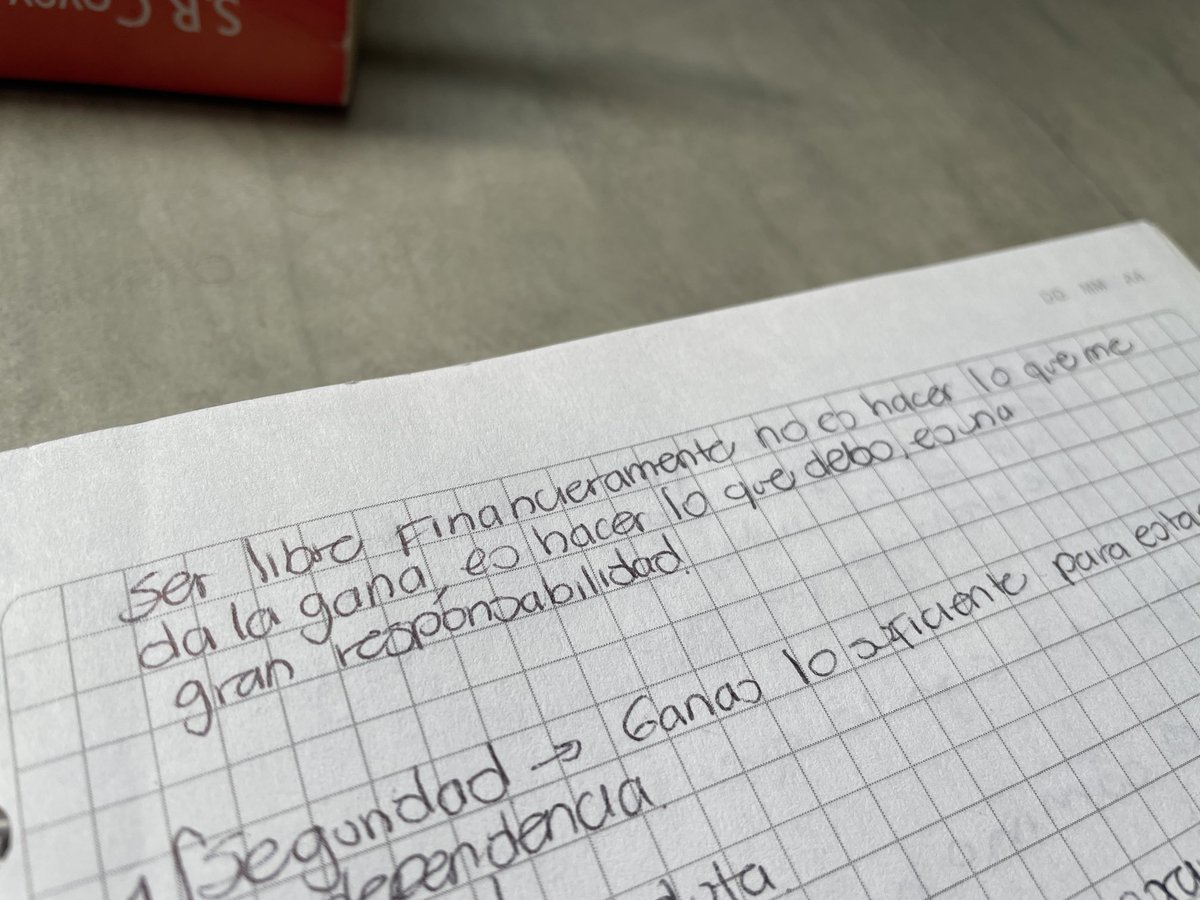 S.R. Covey
DD MM AA
Ser libre Financieramente no es hacer lo que me
da la gana, es hacer lo que debo, es una
gran responsabilidad.
Seguridad → Ganas lo suficiente para
dependencia.